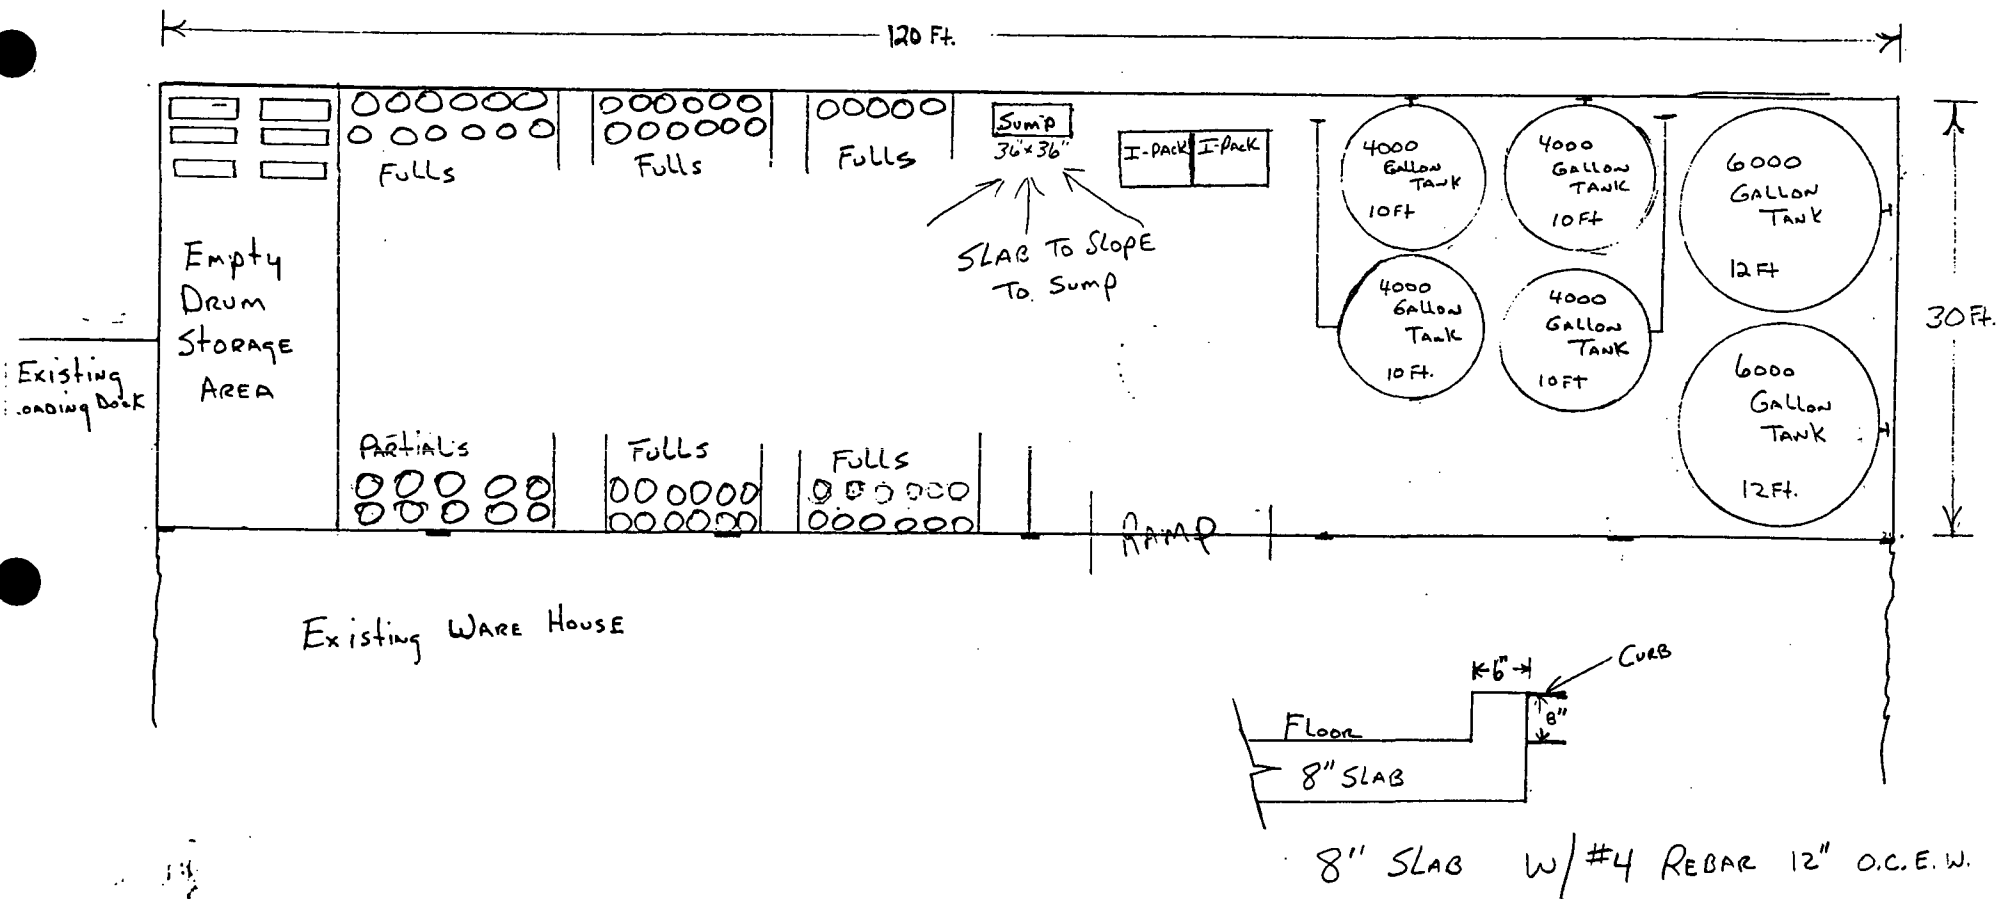 120 Ft.
Fulls
Fulls
Fulls
Sump
36"x36"
I-PACK I-PACK
4000
GALLON
TANK
10 Ft
4000
GALLON
TANK
10 Ft
6000
GALLON
TANK
12 Ft
SLAB TO SLOPE
TO SUMP
4000
GALLON
TANK
10 Ft.
4000
GALLON
TANK
10 FT
6000
GALLON
TANK
12 Ft.
30 Ft.
Empty
DRUM
STORAGE
AREA
Existing
LOADING DOCK
PARTIALS
FULLS
FULLS
RAMP
Existing WARE HOUSE
6"
CURB
8"
FLOOR
8" SLAB
8" SLAB W/ #4 REBAR 12" O.C.E.W.